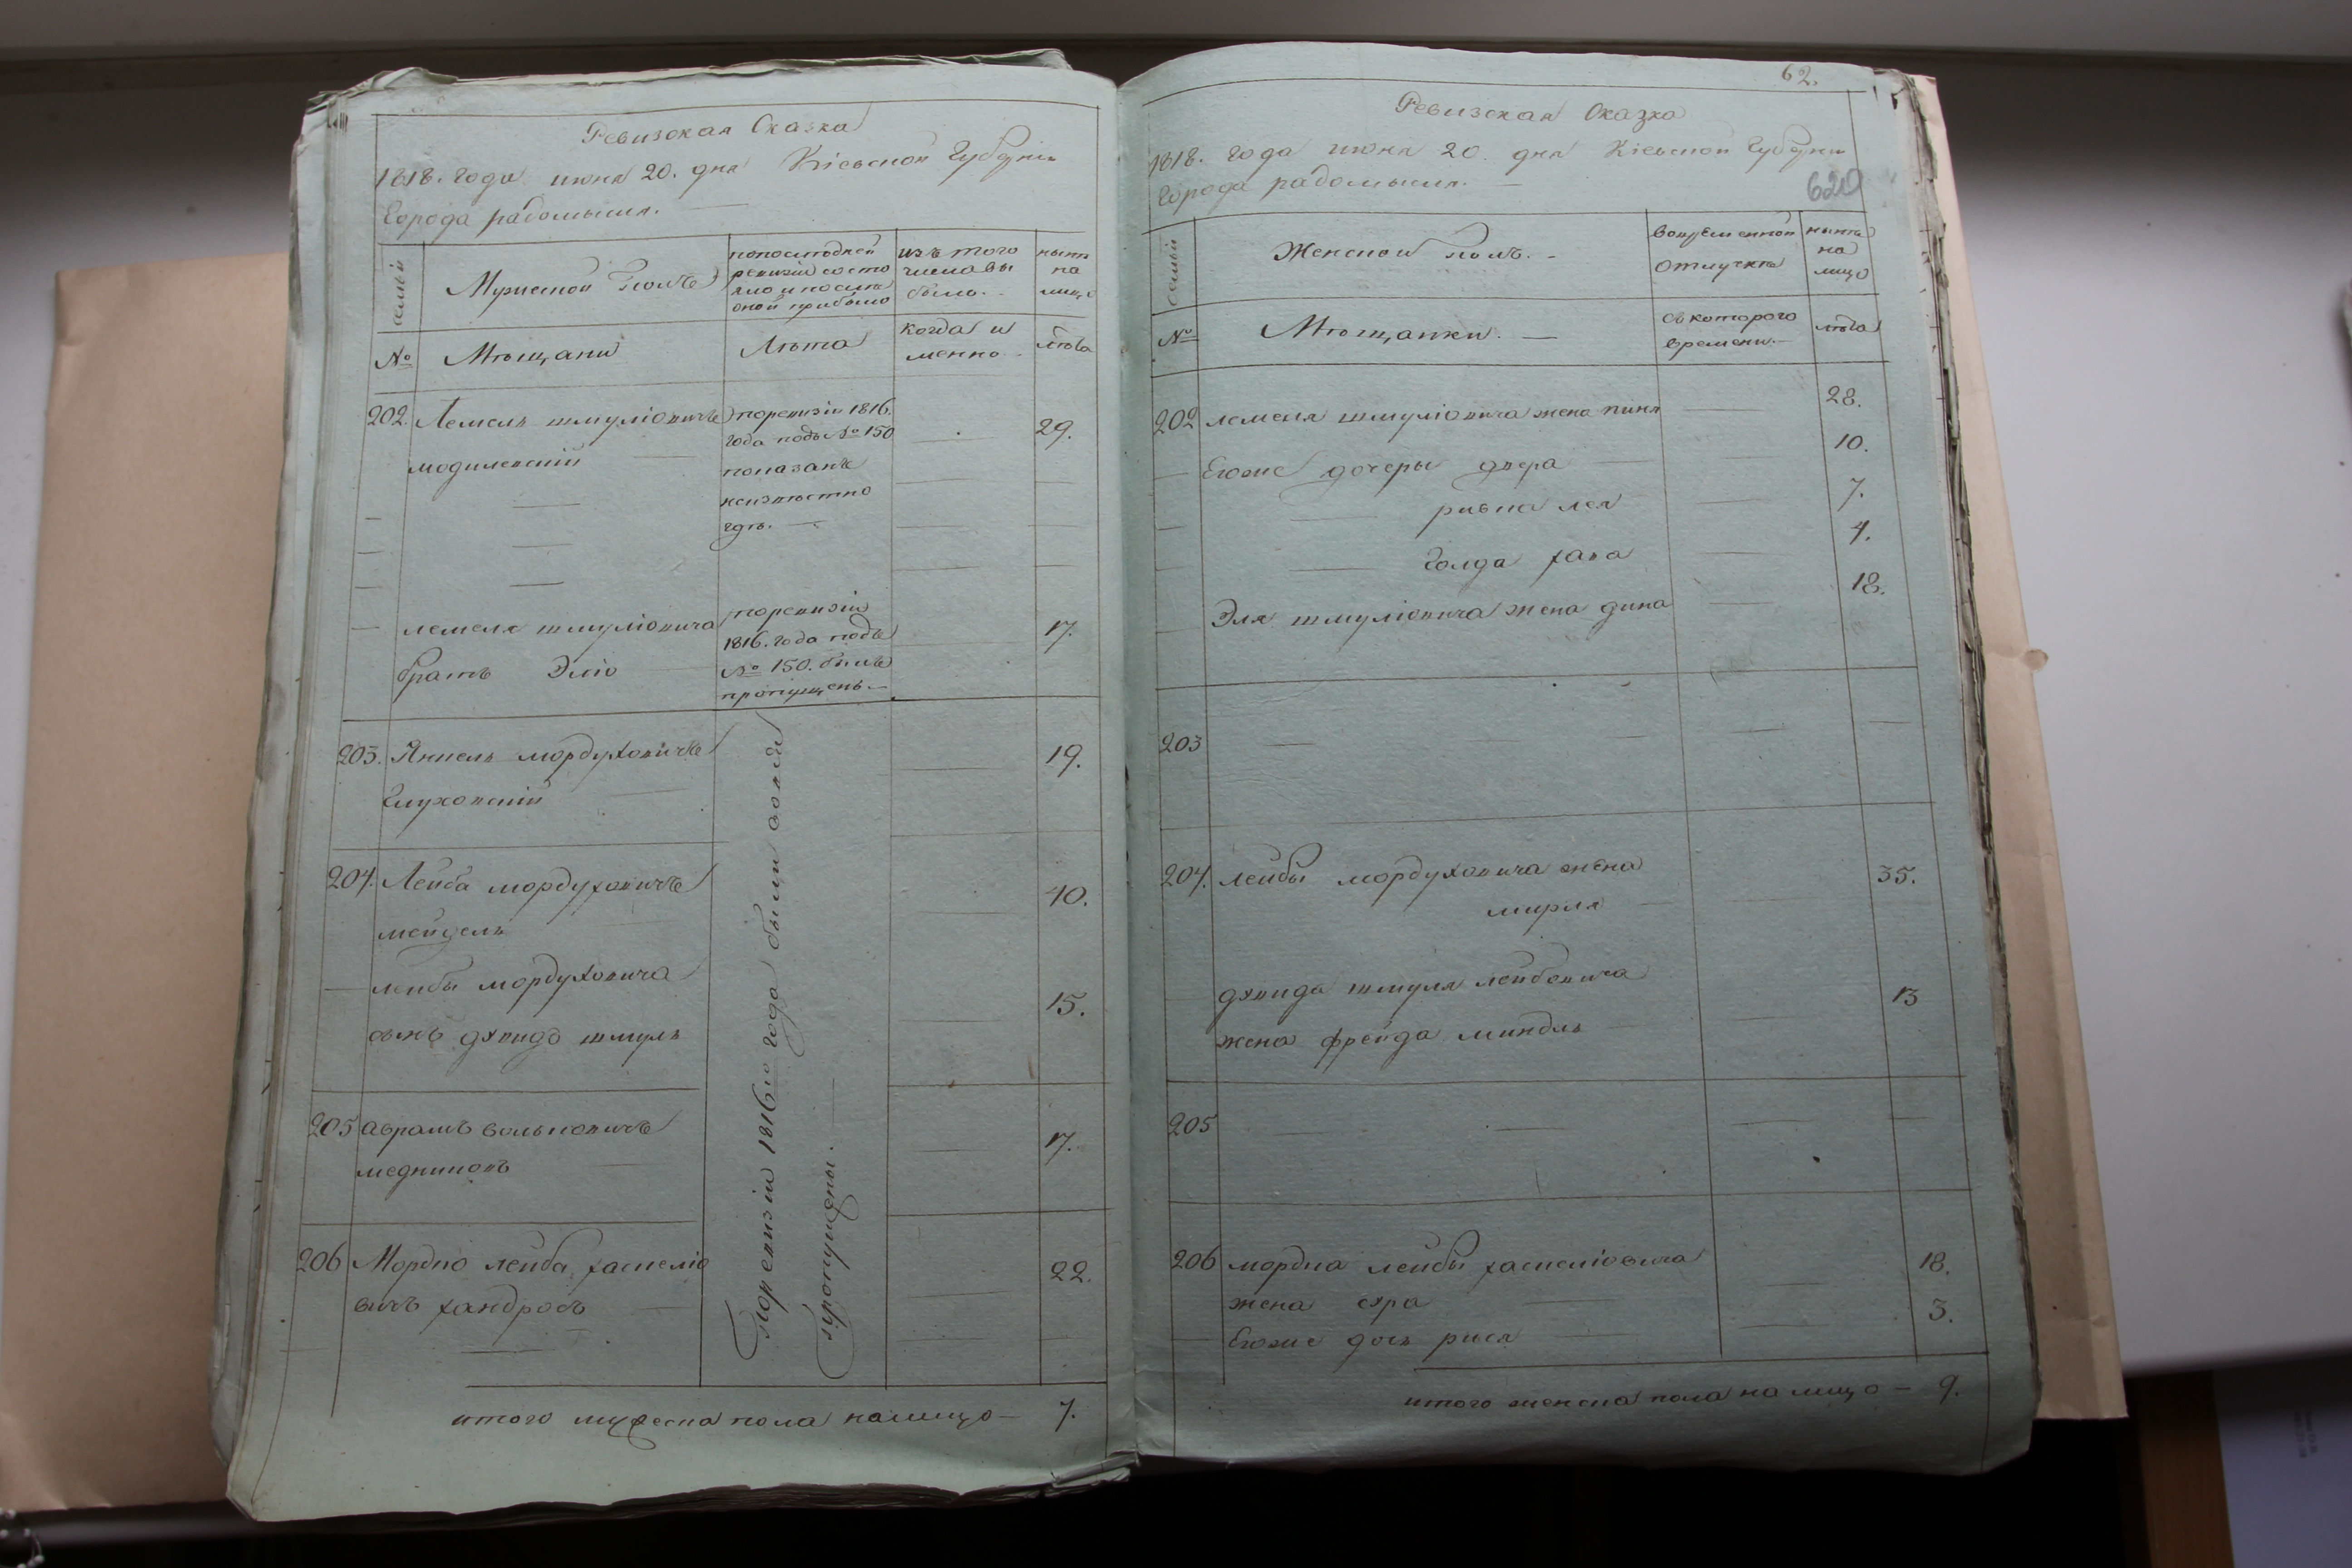 Ревизская Сказка
1818. года июня 20. дня Кіевской Губерніи
Города радомысля. —
семьи
Мужеской полъ
попоследней
ревизіи состо
яло и после
оной прибыло
изъ того
числа вы
было. -
ныне
на
лицо
№
Мѣщани
Лѣта
когда и
менно -
лѣта
202. Лемель шмуліовичъ поревизіи 1816. 29.
года подъ № 150
модилевскій показанъ
неизвѣстно
гдѣ. —
лемеля шмуліовича поревизіи 17.
1816. года подъ
братъ Эліо № 150. былъ
пропущенъ. —
203. Янкель мордуховичъ 19.
Глуховскій
204. Лейба мордуховичъ 40.
мейдель
лейбы мордуховича 15.
сынъ дувидъ шмуль
205 аврамъ вольковичъ 17.
медниковъ
206 Мордко лейба хаскеліо 22.
вичъ хандросъ
Поревизіи 1816го года были
пропущены. —
итого мужеска пола налицо — 7.
62.
Ревизская Сказка
1818. года июня 20. дня Кіевской Губерни
Города радомысля. —
620
семьи
Женской полъ. -
вовременной
отлучке
ныне
на
лицо
№
Мѣщанки. —
съкоторого
времени. —
лѣта
202 лемеля шмуліовича жена 28.
Егоже дочеры двера 10.
ривка лея 7.
Голда хава 4.
Эля шмуліовича жена дина 18.
203
204. лейбы мордуховича жена 35.
мирля
дувида шмуля лейбовича 13
жена фрейда миндль
205
206 мордка лейбы хаскеліовича 18.
жена сура
Егоже дочь рися 3.
итого женска пола на лицо — 9.